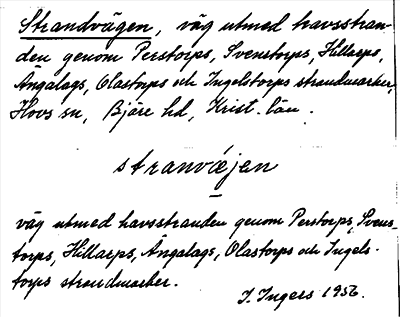 Strandvägen, väg utmed havsstran-
den genom Perstorps, Svenstorps, Hillarps,
Ängalags, Olastorps och Ingelstorps strandmarker,
Hovs sn, Bjäre hd, Krist. län.
stranvæjen
väg utmed havsstranden genom Perstorps, Svens-
torps, Hillarps, Ängalags, Olastorps och Ingels-
torps strandmarker.
I. Ingers 1956.